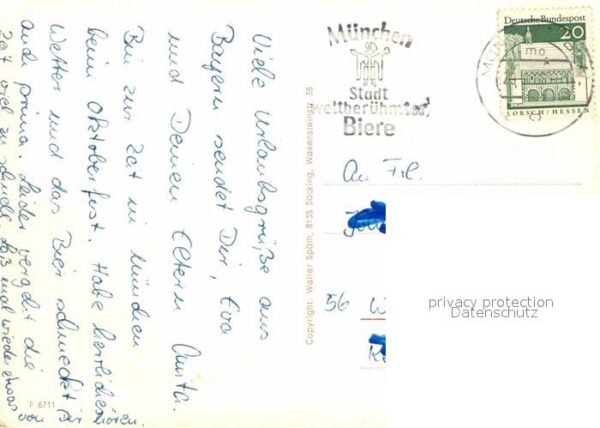 Viele Urlaubsgrüße aus
Bayern sendet Dir, Eva
und Deinen Eltern Anita.
Bin zur Zeit in München
beim Oktoberfest. Habe herrliches
Wetter und das Bier schmeckt
auch prima. Leider vergeht die
Zeit viel zu schnell. Laß mal wieder etwas
von Dir hören.
F 6711
Copyright: Walter Späth, 8135 Söcking, Waxensteinstr. 38
München
Stadt
weltberühmter
Biere
MÜN
Deutsche Bundespost
20
LORSCH / HESSEN
An Frl.
56 W
privacy protection
Datenschutz